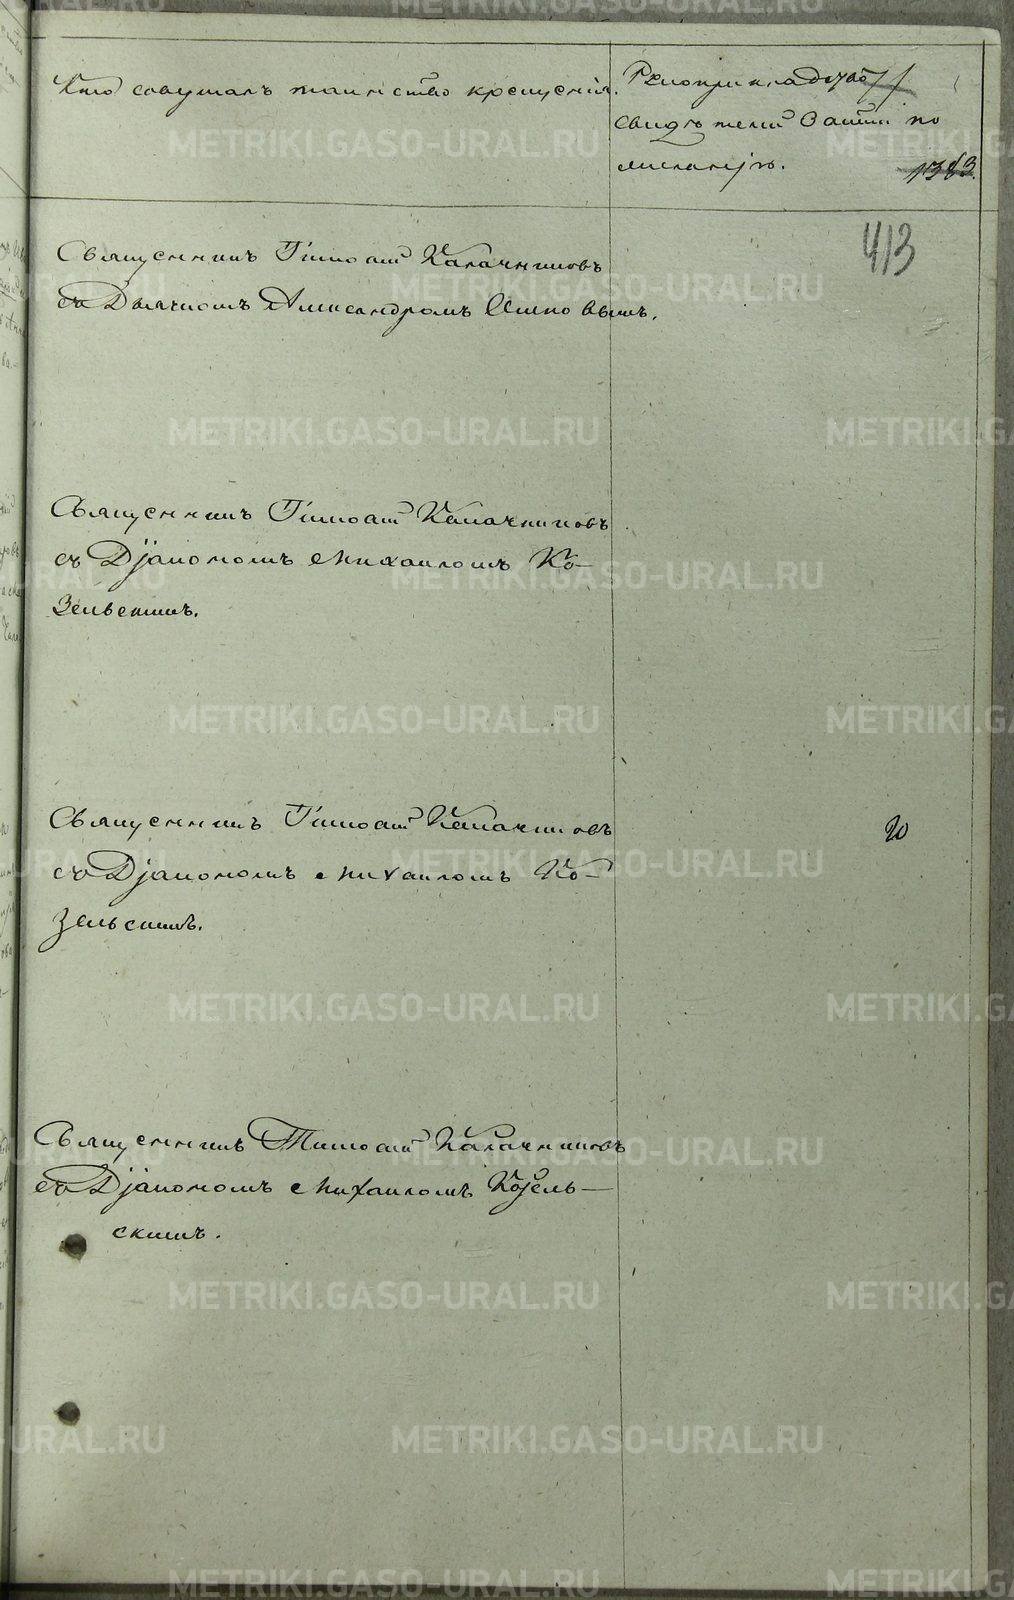 Кто совершалъ таинство крещенія.
Рукоприкладство
свидѣтелей записи по
желанію.
1383.
413
Священникъ Тимоѳей Калачниковъ
съ Дьячкомъ Александромъ
Священникъ Тимоѳей Калачниковъ
съ Діакономъ Михаиломъ Ко-
зельскимъ.
Священникъ Тимоѳей Калачниковъ
съ Діакономъ Михаиломъ Ко-
зельскимъ.
20
Священникъ Тимоѳей Калачниковъ
съ Діакономъ Михаиломъ Козель-
скимъ.
METRIKI.GASO-URAL.RU